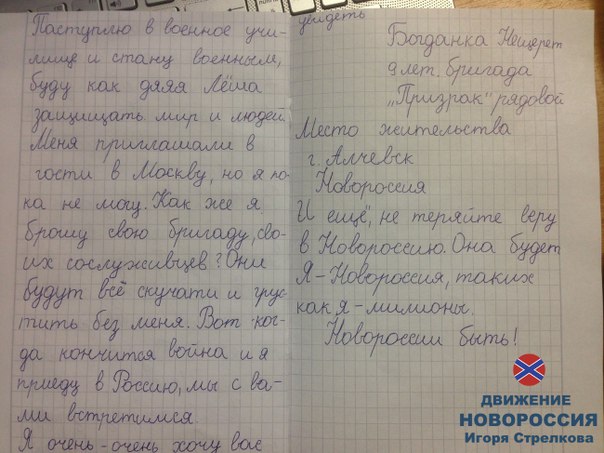 Паступлю в военное учи-
лище и стану военным,
буду как дядя Лёша
защищать мир и людей.
Меня приглашали в
гости в Москву, но я по-
ка не могу. Как же я
брошу свою бригаду, сво-
их сослуживцев? Они
будут всё скучати и грус-
тить без меня. Вот ког-
да кончится война и я
приеду в Россию, мы с ва-
ми встретимся.
Я очень-очень хочу вас
увидеть
Богданка Нещерет
9 лет, бригада
„Призрак" рядовой
Место жительства
г. Алчевск
Новороссия
И ещё, не теряйте веру
в Новороссию. Она будет
Я-Новороссия, таких
как я-милионы.
Новороссии быть!
ДВИЖЕНИЕ
НОВОРОССИЯ
Игоря Стрелкова